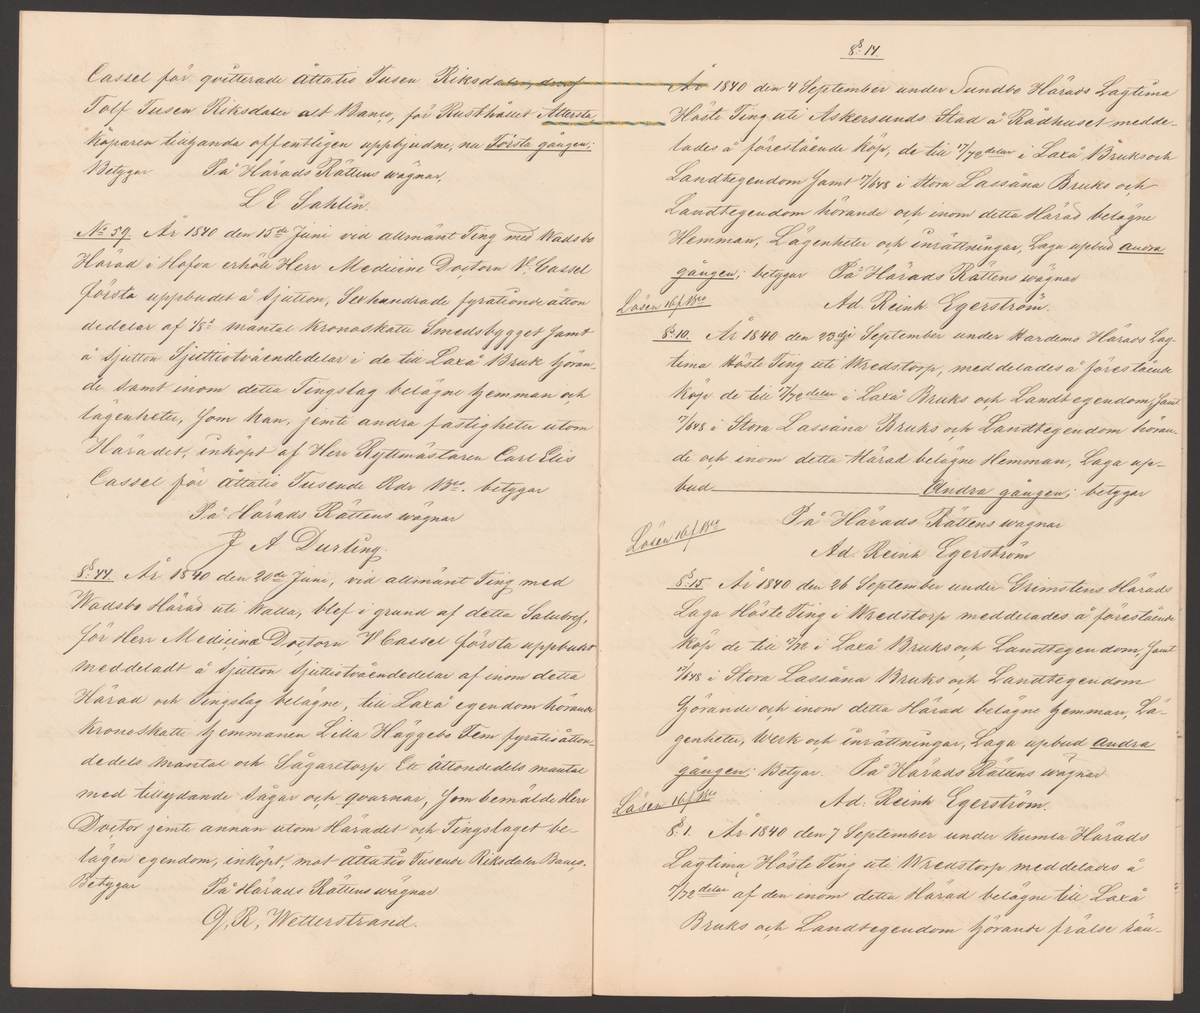 Cassel för qvitterade Åttatio Tusen Riksdaler, deraf
Tolf Tusen Riksdaler alt Banco, för Rusthållet Åttersta
köparen tillhanda offentligen uppbjudne, nu Första gången;
Betygar På Härads Rättens wägnar,
L E Sahlin.
No 59. År 1840 den 15de Juni vid allmänt Ting med Wadsbo
Härad i Hofva erhölt Herr Medicine Doctorn V. Cassel
första uppbudet å Sjutton, Sexhundrade fyrationde åtton
dedelar af 1/8s mantal Kronoskatte Smedsbygget Jamt
å sjutton Sjuttiotvåendedelar i de till Laxå Bruk höran-
de samt inom detta Tingslag belägne hemman och
lägenheter, Som han, jemte andra fastigheter utom
Häradet, inköpt af Herr Ryttmästaren Carl Elis
Cassel för Åttatio Tusende Rdr Bco. betygar
På Härads Rättens wägnar
J A Durling.
§. 44. År 1840 den 20de Juni, vid allmänt Ting med
Wadsbo Härad uti Walla, blef i grund af detta Salubref,
för Herr Medicine Doctorn W Cassel första uppbudet
meddeladt å Sjutton Sjuttiotvåendedelar af inom detta
Härad och Tingslag belägne, till Laxå egendom hörande
Kronoskatte hemmanen Lilla Häggebo Fem fyratioåtton-
dedels mantal och Sågaretorp Ett Åttondedels mantal
med tillydande Sågar och qvarnar, Som bemälde Herr
Doctor jemte annan utom Häradet och Tingslaget be-
lägen egendom, inköpt, mot Åttatio Tusende Riksdaler Banco.
Betygar På Härads Rättens wägnar
G, R, Wetterstrand.
§. 14.
År 1840 den 4 September under Sundbo Härads Lagtima
Höste Ting uti Askersunds Stad å Rådhuset medde-
lades å förestående köp, de till 17/72 delar i Laxå Bruks och
Landtegendom Jamt 17/648 i Stora Lassåna Bruks och
Landtegendom hörande och inom detta Härad belägne
Hemman, Lägenheter och inrättningar, Laga upbud andra
gången; betygar På Härads Rättens wägnar
Lösen 16 f Bco Ad. Reinh Egerström.
§. 10. År 1840 den 23dje September under Hardems Härads Lag-
tima Höste Ting uti Wredstorp, meddelades å förestående
köp de till 17/72 delar i Laxå Bruks och Landtegendom, Jamt
17/648 i Stora Lassåna Bruks och Landtegendom höran-
de och inom detta Härad belägne Hemman, Laga up-
bud Andra gången; betygar
På Härads Rättens wägnar
Lösen 16 f Bco
Ad Reinh Egerström
§. 15. År 1840 den 26 September under Grimstens Härads
Laga Höste Ting i Wredstorp meddelades å förestående
köp de till 17/72 i Laxå Bruks och Landtegendom, Jamt
17/648 i Stora Lassåna Bruks och Landtegendom
hörande och inom detta Härad belägne hemman, Lä-
genheter, Werk och inrättningar, Laga upbud andra
gången; Betyar. På Härads Rättens wägnar
Lösen 16 f Bco Ad. Reinh Egerström.
§. 1. År 1840 den 7 September under Kumla Härads
Lagtima Höste Ting uti Wredstorp meddelades å
17/72 delar af den inom detta Härad belägne till Laxå
Bruks och Landtegendom hörande frälse hän-